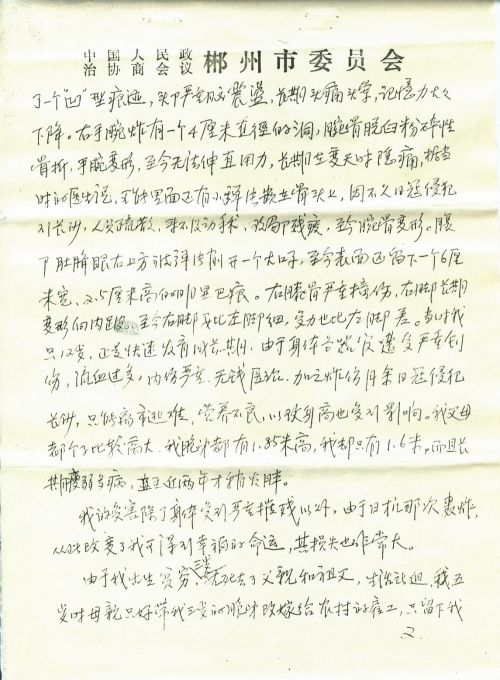 中国人民政
治协商会议 郴州市委员会
了一个"凹"型痕迹，头部严重震盪，长期头痛头晕，记忆力大大
下降。右手腕炸有一个4厘米直径的洞，腕骨脱臼粉碎性
骨折，手腕变形，至今无法伸直用力，长期在变天时隐痛，据当
时的医生说，可能里面还有小弹片贴在骨头上，因不久日寇侵犯
到长沙，人员疏散，来不及动手术，致局部残废，至今腕骨变形。腹
部肚脐眼右上方被弹片削开一个大口子，至今表面还留下一个6厘
米宽、2.5厘米高的明显巴痕。右膝骨严重撞伤，右脚长期
变形向内，至今右脚比左脚细，受力也比左脚差。当时我
只12岁，正是快速发育成长期，由于身体各部位遭受严重创
伤，流血过多，内伤严重，无钱医治，加之炸伤月余日寇侵犯
长沙，只能带病逃难，营养不良，以致身高也受到影响。我父母
都个子比较高大，我胞弟都有1.85米高，我却只有1.6米，而且长
期瘦弱多病，直至近两年才稍发胖。
我的受害除了身体受到严重摧残以外，由于日机那次轰炸，
从此改变了我可得到幸福的命运，其损失也非常大。
由于我出生贫穷，三岁死去了父亲和祖父，生活所迫，我五
岁时母亲只好带我三岁的胞弟改嫁给农村的雇工，只留下我
2.